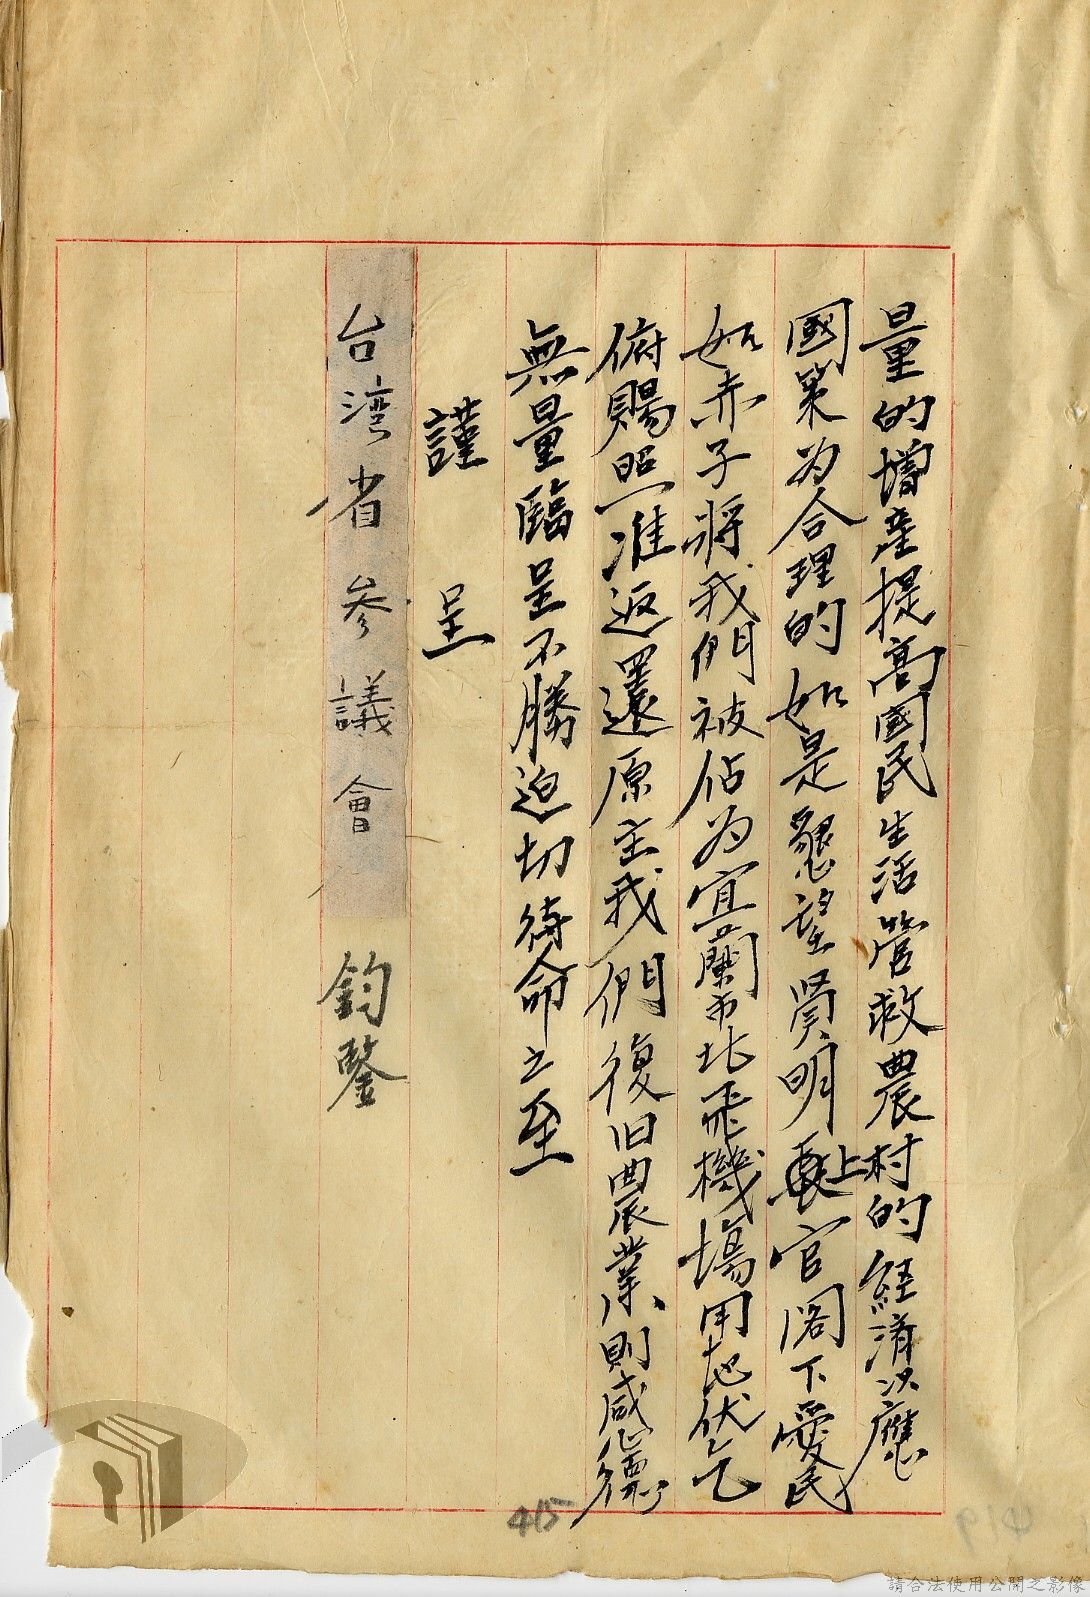 量的增產提高國民生活管救農村的經済以應
國策为合理的如是懇望賢明上官阁下愛民
如赤子將我們被佔为宜蘭市北飛機場用地伏乞
俯賜照准返還原主我們復旧農業則感德
無量臨呈不勝迫切待命之至
謹呈
台湾省参議會鈞鑒
415
419
請合法使用公開之影像